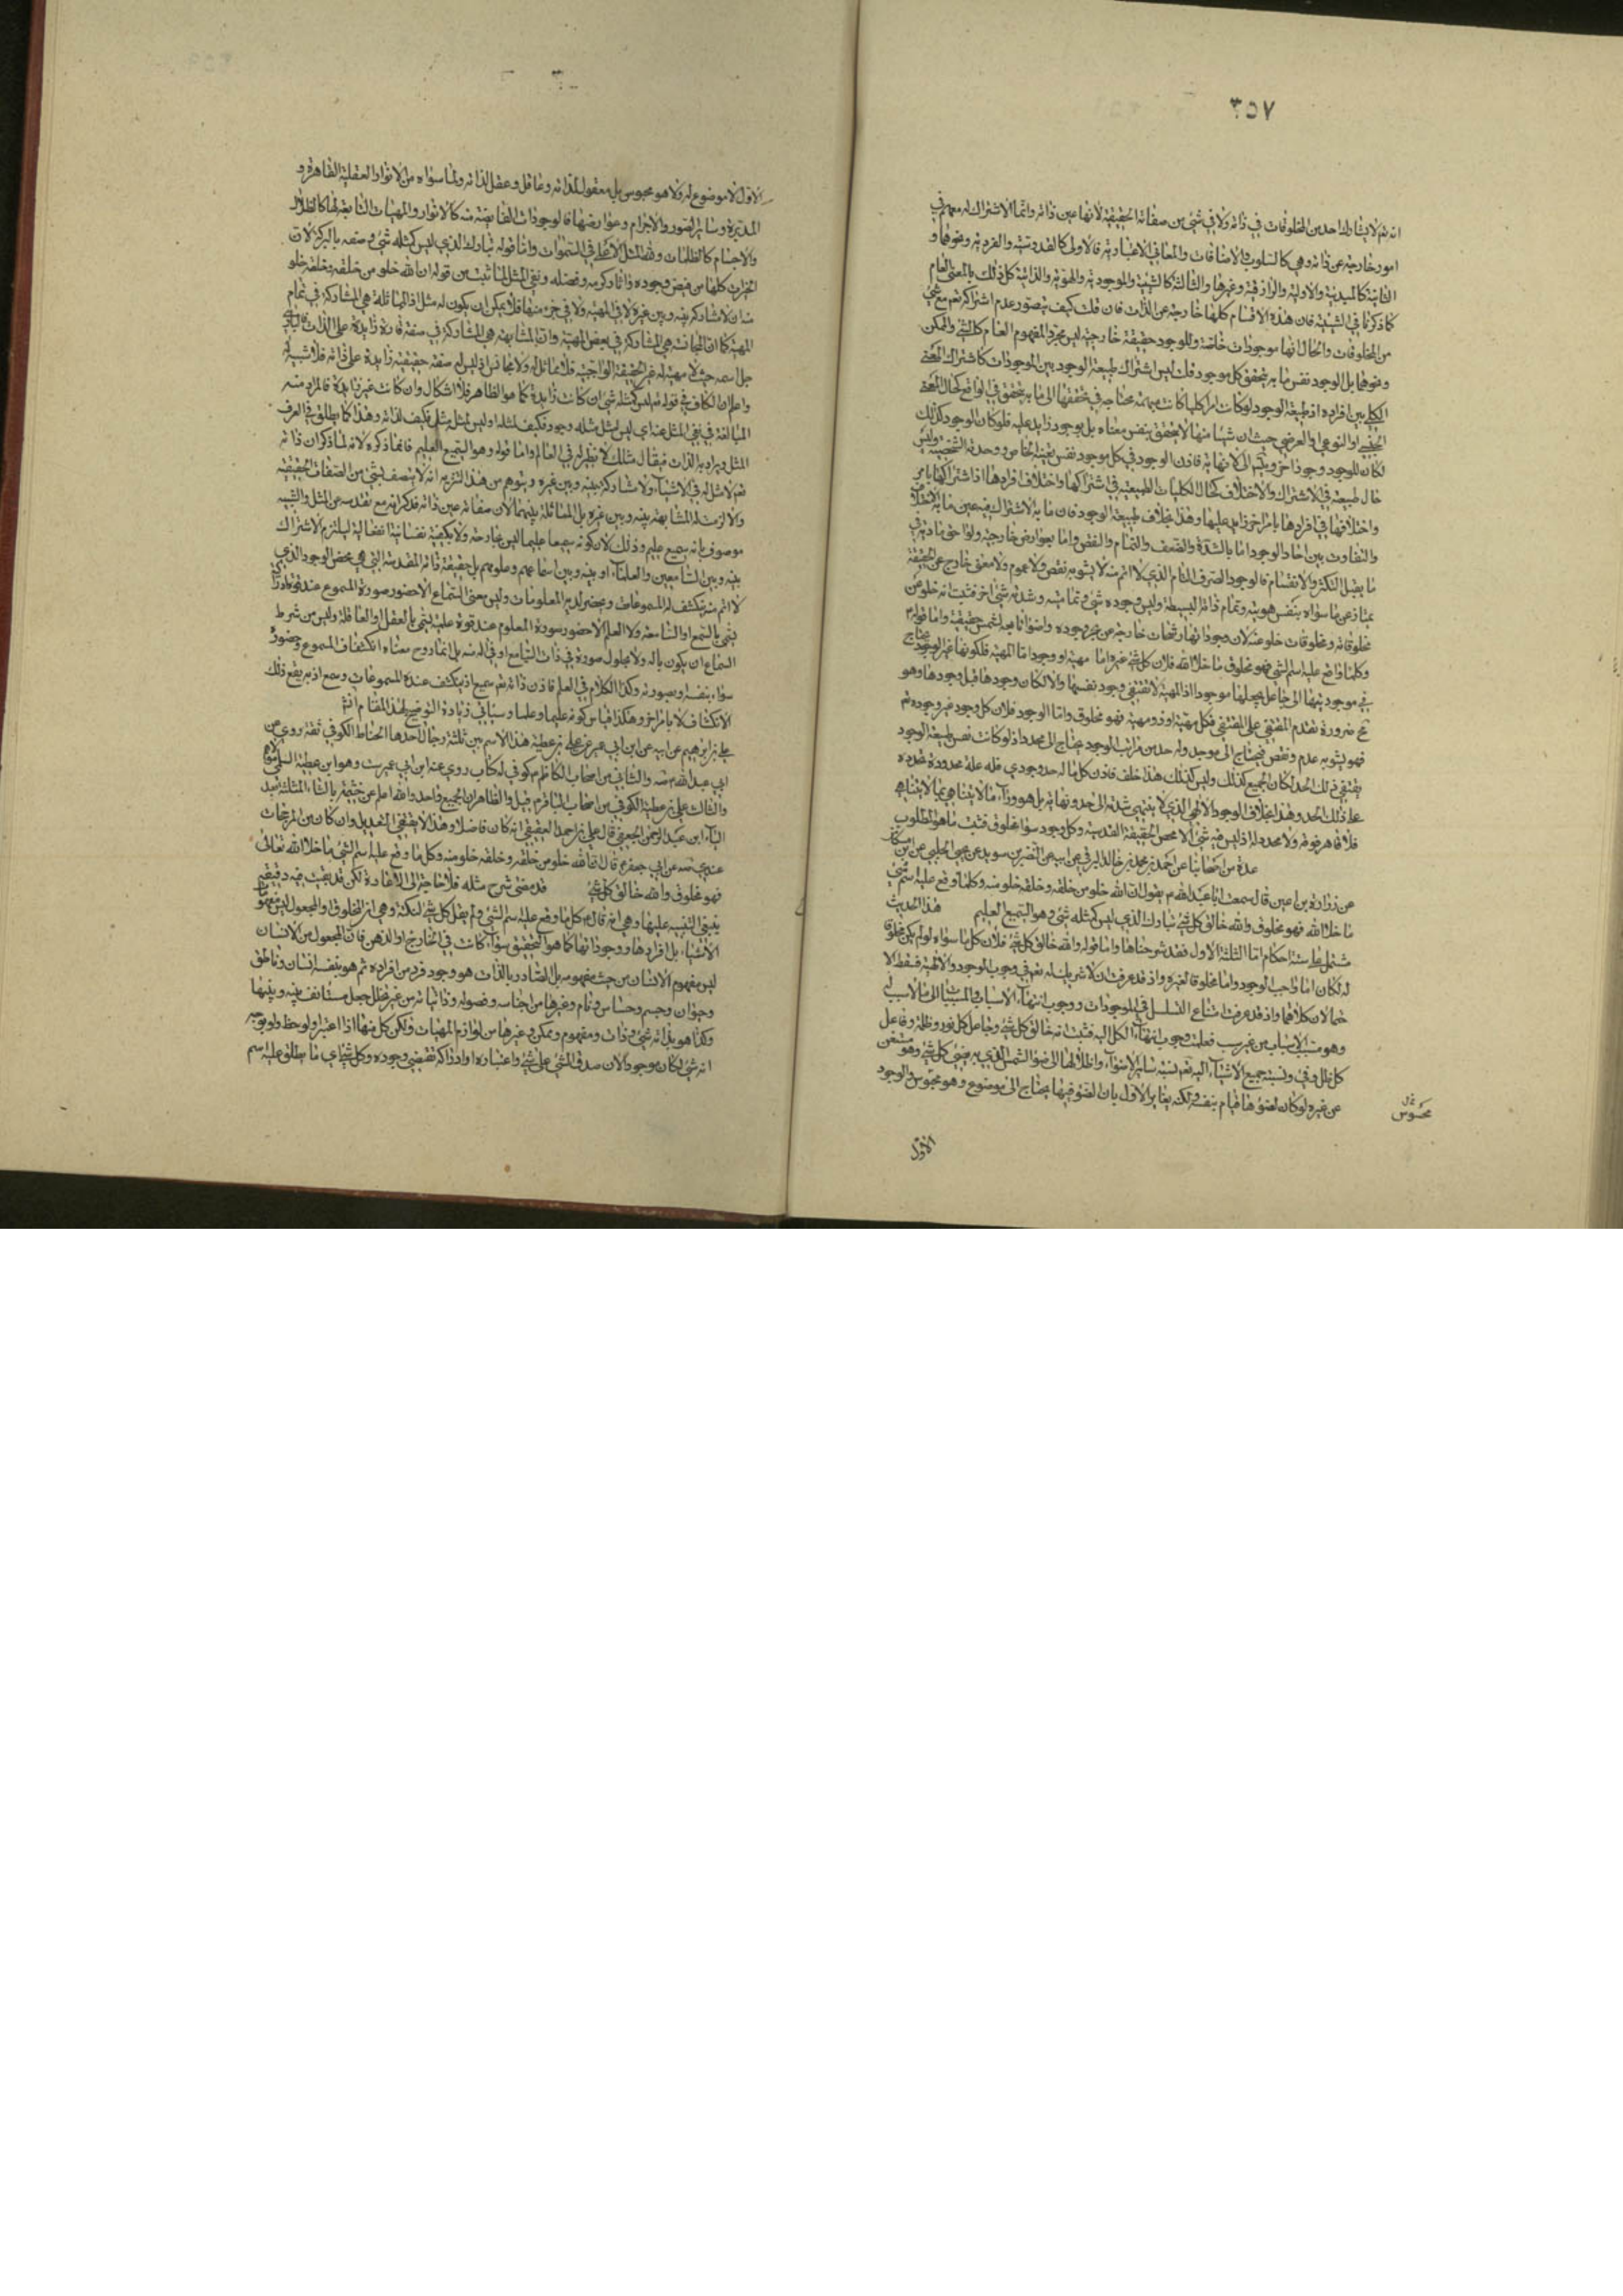 ٣٥٧
انه تعالى لا يشارك احد من المخلوقات في ذاته ولا في شئ من صفاته الحقيقية لانها عين ذاته وانما الاشتراك له معهم في
امور خارجة عن ذاته وهي كالسلوب والاضافات والمعاني الاعتبارية فالاولى كالقدوسية والفردية ونحوهما و
الثانية كالمبدئية والاولية والرازقية وغيرها والثالثة كالشيئية والموجودية والهوية والذاتية كل ذلك بالمعنى العام
كما ذكرنا في الشيئية فان هذه الاقسام كلها خارجة عن الذات فان قلت كيف يتصور عدم اشتراكه تعالى مع شئ
من المخلوقات والحال انها موجودات خاصة وللوجود حقيقة خارجية ليس مجرد المفهوم العام كالشئ والممكن
ونحوهما بل الوجود نفس ما به يتحقق كل موجود قلت ليس اشتراك طبيعة الوجود بين الموجودات كاشتراك المعنى
الكلي بين افراده اذ طبيعة الوجود لو كانت امرا كليا كانت مبهمة محتاجة في تحققها الى ما به يتحقق في الواقع كحال المعنى
الجنسي او النوعي او العرضي حيث ان شيئا منها لا يتحقق بنفس معناه بل بوجود زايد عليه فلو كان الوجود كذلك
لكان للوجود وجودا اخر ويتم الى لا نهاية فاذن الوجود في كل موجود نفس تعينه الخاص ووحدته الشخصية وليس
حال طبيعته في الاشتراك والاختلاف كحال الكليات الطبيعية في اشتراكها واختلاف افرادها اذ اشتراكها بامر
واختلافها في افرادها بامر اخر زايد عليها وهذا بخلاف طبيعة الوجود فان ما به الاشتراك فيه عين ما به الاختلاف
والتفاوت بين احاد الوجود اما بالشدة والضعف والتمام والنقص واما بعوارض خارجية ولواحق مادية في
ما يقبل التكثر والانقسام فالوجود الصرف التام الذي لا اتم منه لا يشوبه نقص ولا عموم ولا معنى خارج عن الحقيقة
يمتاز عن ما سواه بنفس هويته وتمام ذاته البسيطة وليس وجوده شئ وتماميته وشدته شئ اخر فثبت انه خلو من
مخلوقاته ومخلوقاته خلو عنه لان وجوداتها رشحات خارجة من بحر وجوده واضواء تابعة لشمس حقيقته واما قوله
وكلما وقع عليه اسم الشئ فهو مخلوق ما خلا الله فلان كل شئ غيره اما مهية او وجود اما المهية فلكونها غير الوجود محتاج
في موجوديتها الى جاعل يجعلها موجودا اذ المهية لا تقتضي وجود نفسها والا لكان وجودها قبل وجودها وهو
مح ضرورة تقدم المقتضي على المقتضى فكل مهية او ذو مهية فهو مخلوق واما الوجود فلان كل وجود غير وجوده تعالى
فهو يشوبه عدم ونقص فيحتاج الى موجد وله حد من مراتب الوجود يحتاج الى محدد اذ لو كانت نفس طبيعة الوجود
يقتضي ذلك الحد لكان الجميع كذلك وليس كذلك هذا خلف فاذن كل ما له حد وجودي فله علة محددة تحدده
على ذلك الحد وهذا بخلاف الوجود الالهي الذي لا ينتهي شدته الى حد ونهاية بل هو وراء ما لا يتناهى بما لا يتناهى
فلا قاهر فوقه ولا محدد له اذ ليس فيه شئ الا محض الحقيقة القدسية وكل وجود سواه مخلوق فثبت ما هو المطلوب
عدة من اصحابنا عن احمد بن محمد بن خالد البرقي عن ابيه عن النضر بن سويد عن يحيى الحلبي عن ابن مسكان
عن زرارة بن اعين قال سمعت ابا عبد الله يقول ان الله خلو من خلقه وخلقه خلو منه وكلما وقع عليه اسم شئ
ما خلا الله فهو مخلوق والله خالق كل شئ تبارك الذي ليس كمثله شئ وهو السميع العليم هذا الحديث
مشتمل على ستة احكام اما الثلثة الاول فقد شرحناها واما قوله والله خالق كل شئ فلان كل ما سواه لو لم يكن مخلوقا
له لكان اما واجب الوجود واما مخلوقا لغيره واذ قد عرفت ان لا شريك له تعالى في وجوب الوجود والالهية فسقط الا
حتمالان كلاهما واذ قد عرفت امتناع التسلسل في الموجودات ووجوب انتهاء الاسباب والمسببات الى ما لا سبب له
وهو مسبب الاسباب من غير سبب فعلمت وجوب انتهاء الكل اليه فثبت انه خالق كل شئ وجاعل كل نور وظلمة وفاعل
كل ظل وفئ ونسبة جميع الاشياء اليه تعالى نسبة ساير الاضواء واظلالها الى ضوء الشمس الذي به يضئ كل شئ وهو مستغن
عن غيره لو كان لضوئها قيام بنفسه ولكنه يغاير الاول بان لضوء فيها يحتاج الى موضوع وهو محسوس والوجود
محسوس
الاول
الاول لا موضوع له ولا هو محسوس بل معقول لذاته وعاقل وعقل لذاته ولما سواه من الانوار العقلية القاهرة و
المدبرة وساير الصور والاجرام وعوارضها فالوجودات الفايضة منه كالانوار والمهيات التابعة لها كالظلال
والاجسام كالظلمات ولله المثل الاعلى في السموات واما قوله تبارك الذي ليس كمثله شئ وصفه بالبركة لان
الخيرات كلها من فيض وجوده واثار كرمه وفضله ونفى المثل لما ثبت من قوله ان الله خلو من خلقه وخلقه خلو
منه ان لا مشاركة بينه وبين غيره لا في المهية ولا في جزء منها فلا يمكن ان يكون له مثل اذ المماثلة هي المشاركة في تمام
المهية كما ان المجانسة هي المشاركة في بعض المهية وان المشابهة هي المشاركة في صفة قارة زايدة على الذات فالباري
جل اسمه حيث لا مهية له غير الحقيقة الواجبية فلا مماثل له ولا مجانس اذ ليس له صفة حقيقية زايدة على ذاته فلا شبيه له
واعلم ان الكاف في قوله تعالى ليس كمثله شئ ان كانت زايدة كما هو الظاهر فلا اشكال وان كانت غير زايدة فالمراد منه
المبالغة في نفي المثل عنه اي ليس لمثل مثله وجود فكيف لمثله او ليس لمثل مثل فكيف لذاته وهذا كما يطلق في العرف
المثل ويراد به الذات فيقال مثلك لا نظير له في العالم واما قوله وهو السميع العليم فانما ذكره لانه لما ذكر ان ذاته
تعالى لا مثل له في الاشياء ولا مشاركة بينه وبين غيره ويتوهم من هذا التنزيه انه لا يتصف بشئ من الصفات الحقيقية
والا لزمت له المشابهة بينه وبين غيره بل المماثلة بينهما لان صفاته عين ذاته فذكر انه مع تقدسه عن المثل والشبيه
موصوف بانه سميع عليم وذلك لان كونه سميعا عليما ليس بجارحة ولا بكيفية نفسانية انفعالية ليلزم الاشتراك
بينه وبين السامعين والعلماء او بينه وبين اسماعهم وعلومهم بل حقيقة ذاته المقدسة التي هي محض الوجود الذي
لا اتم منه تنكشف له المسموعات ويحضر لديه المعلومات وليس معنى السماع الا حضور صورة المسموع عند قوة ادراكية
تسمى بالسمع او السامعة ولا العلم الا حضور صورة المعلوم عند قوة علمية تسمى بالعقل او العاقلة وليس من شرط
السماع ان يكون بالة ولا بحلول صورة في ذات السامع او في الة منه بل انما روح معناه انكشاف المسموع وحضوره
سواء بنفسه او بصورته وكذا الكلام في العلم فاذن ذاته تعالى سميع اذ ينكشف عنده المسموعات وسمع اذ به يقع ذلك
الانكشاف لا بامر اخر وهكذا قياس كونه عليما وعلما وسيأتي زيادة التوضيح لهذا المقام انش
علي بن ابرهيم عن ابيه عن ابن ابي عمير عن علي بن عطية هذا الاسم بين ثلثة رجال احدها الحناط الكوفي ثقة روى عن
ابي عبد الله صه والثاني من اصحاب الكاظم كوفي له كتاب روى عنه ابن ابي عمير ست وهو ابن عطية السلمي
والثالث علي بن عطية الكوفي من اصحاب الباقر قيل والظاهر ان الجميع واحد والله اعلم عن خيثمة بالثاء المثلثة بعد
الياء ابن عبد الرحمن الجعفي قال علي بن احمد العقيقي انه كان فاضلا وهذا لا يقتضي التعديل وان كان من المرجحات
عندي صه عن ابي جعفر قال ان الله خلو من خلقه وخلقه خلو منه وكل ما وقع عليه اسم الشئ ما خلا الله تعالى
فهو مخلوق والله خالق كل شئ قد مضى شرح مثله فلا حاجة الى الاعادة لكن قد بقيت فيه دقيقة
ينبغي التنبيه عليها وهي انه قال كل ما وقع عليه اسم الشئ ولم يقل كل شئ لنكتة وهي ان المخلوق والمجعول ليس مفهوم
الاشياء بل افرادها ووجوداتها كما هو التحقيق سواء كانت في الخارج او الذهن فان المجعول من الانسان
ليس مفهوم الانسان من حيث مفهومه بل الصادر بالذات هو وجود فرد من افراده ثم هو بنفسه انسان وناطق
وحيوان وجسم وحساس ونام وغيرها من اجناسه وفصوله وذاتياته من غير تخلل جعل مستانف بينه وبينها
وكذا هو بذاته شئ وذات ومفهوم وممكن وغيرها من لوازم المهيات ولكن كل منها اذا اعتبر ولوحظ
انه شئ لكان موجودا لان صدق الشئ على شئ واعتباره او ادراكه تقتضي وجوده وكل شئ اي ما يطلق عليه اسم